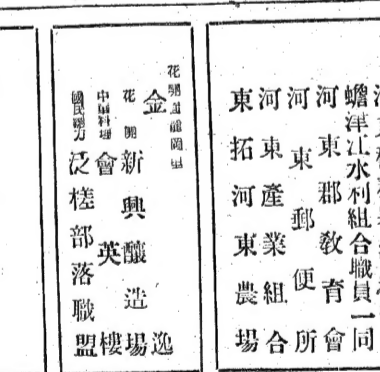 蟾津江水利組合職員一同
河東郡敎育會
河東郵便所
河東產業組合
東拓河東農場
花開面龍岡里
金逸
花開 新興釀造場
中華料理 會英樓
國民總力 泛槎部落職盟